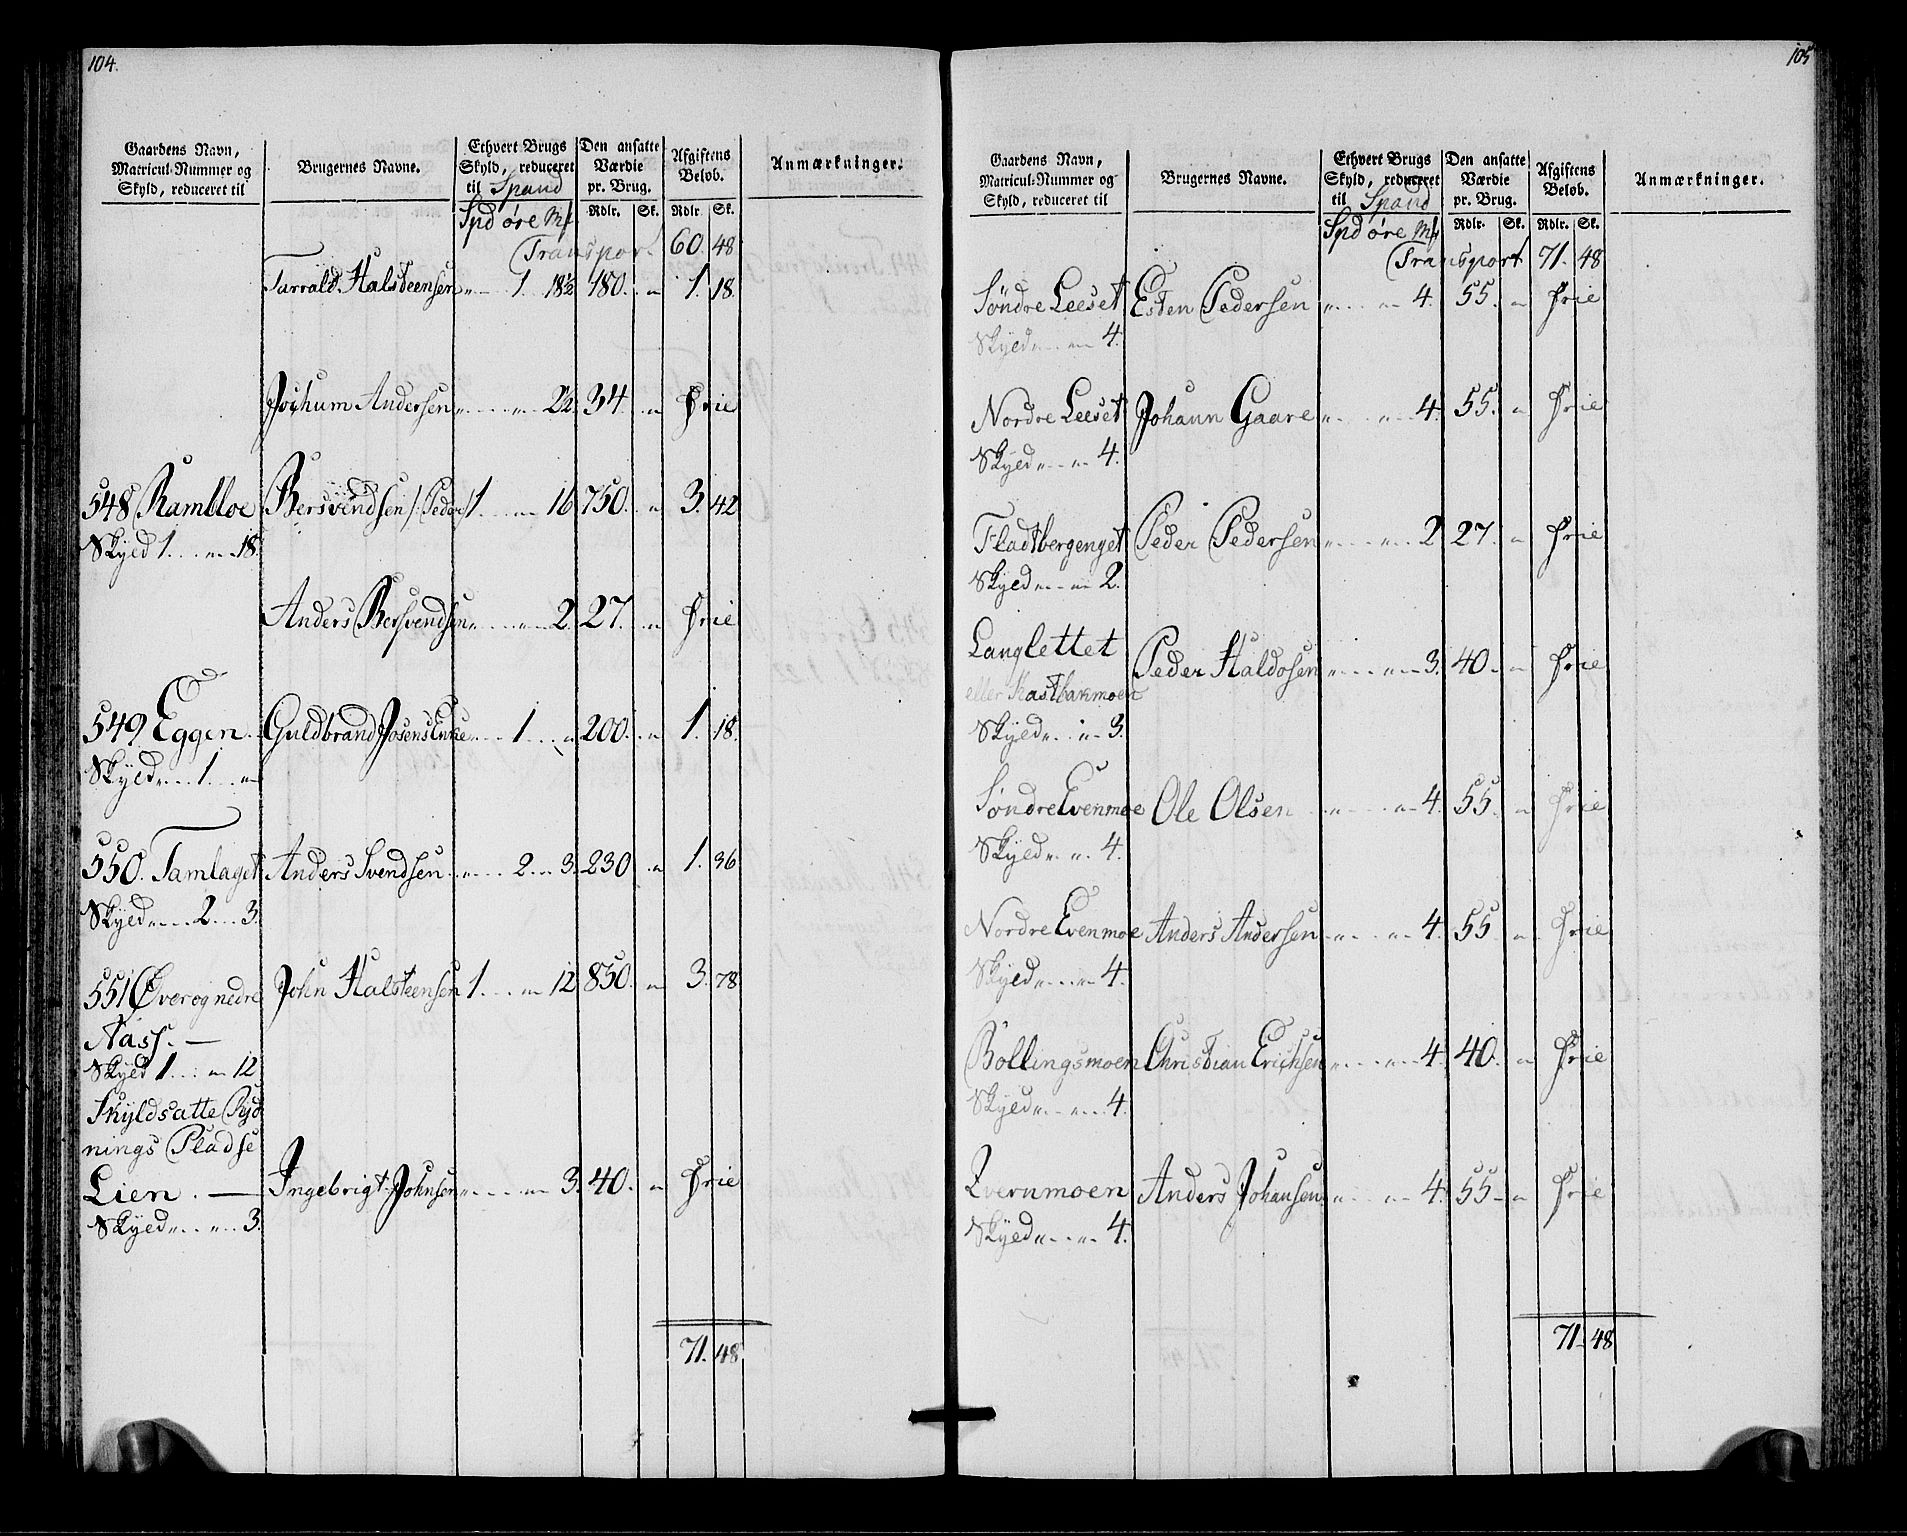 104.
Gaardens Navn, Matricul-Nummer og Skyld, reduceret til
Brugernes Navne.
Ethvert Brugs Skyld, reduceret til Spand
Den ansatte Værdie pr. Brug.
Afgiftens Beløb.
Anmærkninger.
Spd øre Mk Rdlr. Sk. Rdlr. Sk.
Transport 60. 48
Tarrald Halsteensen „ 1. 18½ 180. „ 1. 18.
Jochum Andersen „ „ 2½ 34. „ Frie
548 Rambloe Bersvendsen /:Peder/ 1. „ 16 750. „ 3. 42
Skyld 1. „ 18.
Anders Bersvendsen „ „ 2. 27. „ Frie
549 Eggen Guldbrand Josens Enke „ 1. „ 200. „ 1. 18.
Skyld „ 1. „
550. Tamlaget Anders Svendsen „ 2. 3. 230 „ 1. 36
Skyld „ 2. 3.
551 Øver og nedre John Halsteensen 1. „ 12 850. „ 3. 78
Aass. —
Skyld 1. „ 12
Skyldsatte Ryd
nings Pladse
Lien. — Ingebrigt Johnsen „ „ 3. 40. „ Frie
Skyld „ „ 3.
71. 48
105
Gaardens Navn, Matricul-Nummer og Skyld, reduceret til
Brugernes Navne.
Ethvert Brugs Skyld, reduceret til Spand
Den ansatte Værdie pr. Brug.
Afgiftens Beløb.
Anmærkninger.
Spd øre Mk Rdlr. Sk. Rdlr. Sk.
Transport 71. 48
Søndre Leeset Esten Pedersen „ „ 4. 55. „ Frie
Skyld „ „ 4.
Nordre Leeset Johann Gaare „ „ 4. 55. „ Frie
Skyld „ „ 4.
Fladtbergenget Peder Pedersen „ „ 2 27. „ Frie
Skyld „ „ 2.
Langlettet Peder Haldosen „ „ 3. 40. „ Frie
eller Kastbakmoen
Skyld „ „ 3.
Søndre Evenmoe Ole Olsen „ „ 4. 55. „ Frie
Skyld „ „ 4.
Nordre Evenmoe Anders Andersen „ „ 4. 55 „ Frie
Skyld „ „ 4.
Bollingsmoen Christian Erichsen „ „ 4 40. „ Frie
Skyld „ „ 4.
Qvernmoen Anders Johansen „ „ 4. 55 „ Frie
Skyld „ „ 4.
71 48